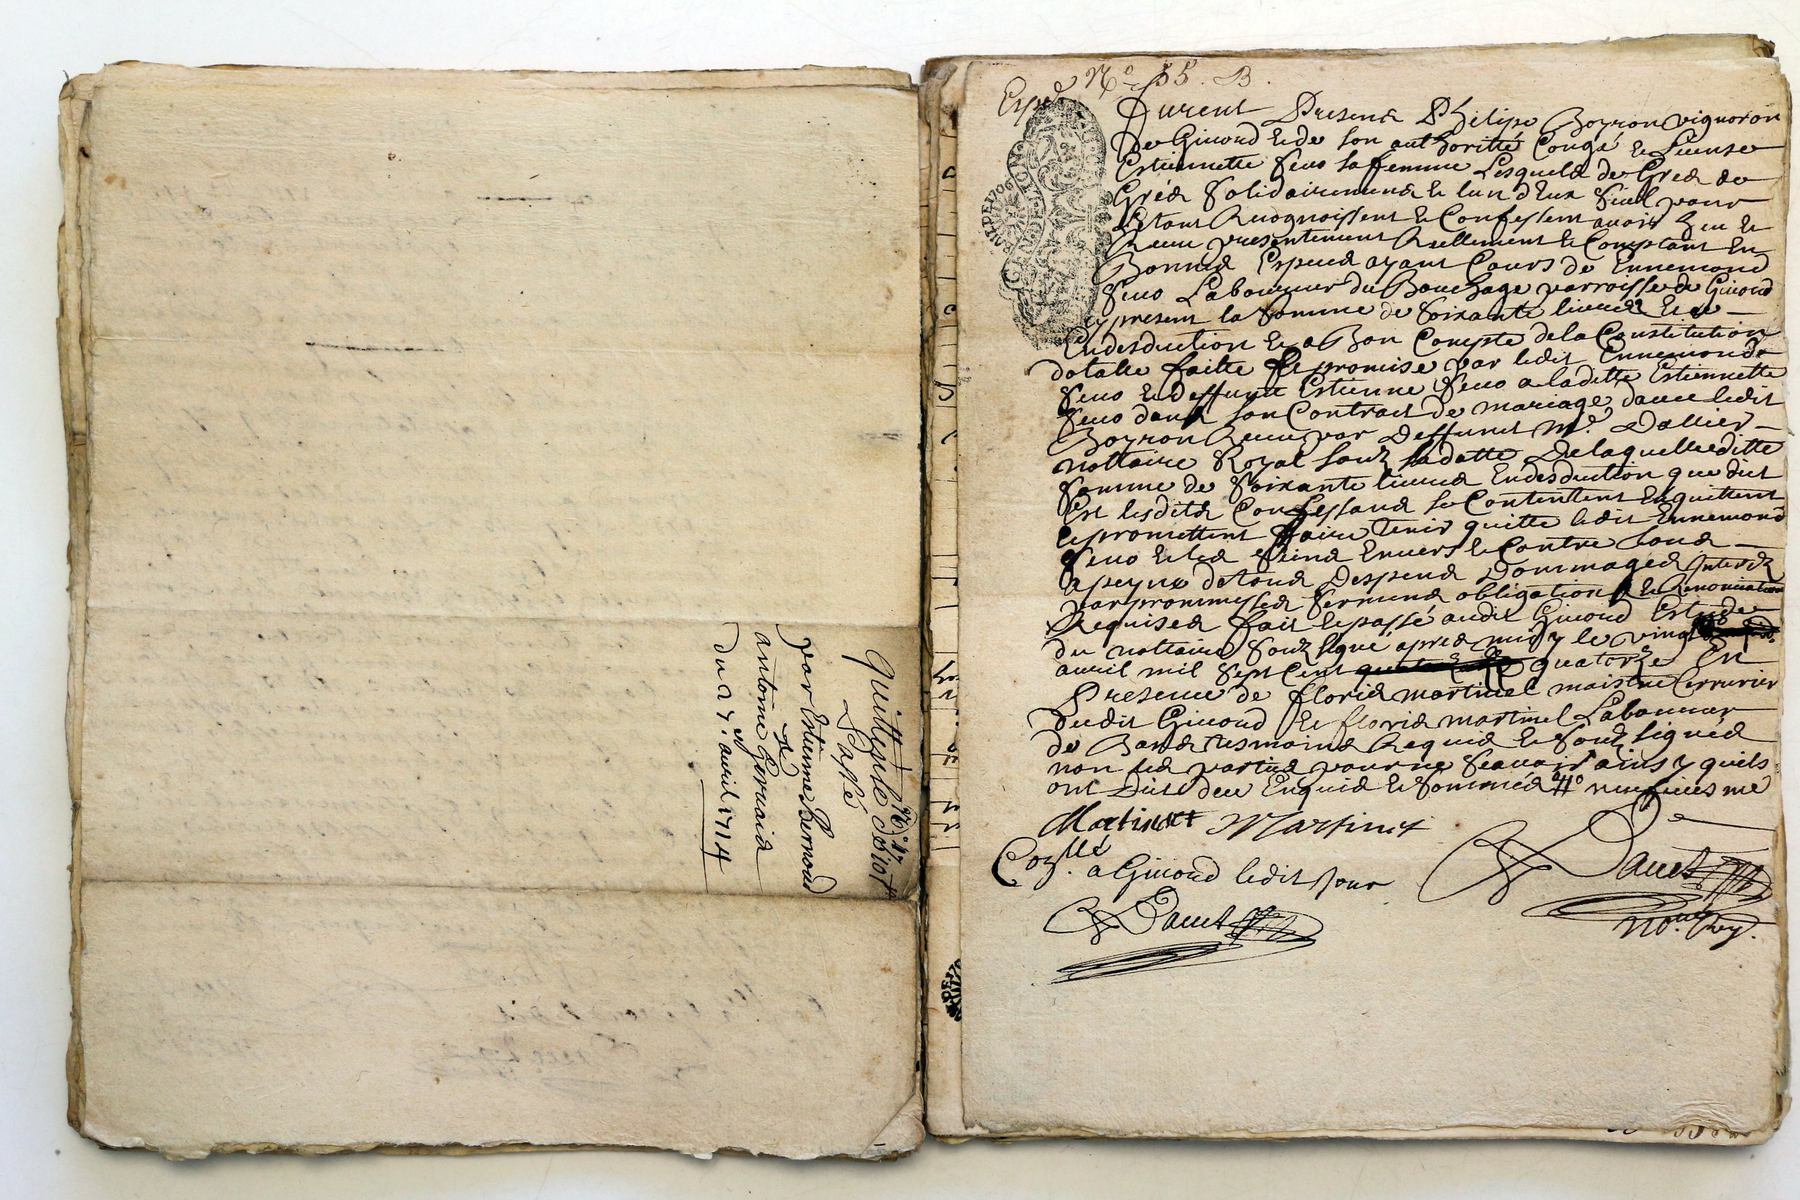 Quittance de 10lt
Passé
par Estienne Bernoud
à
antoine Gervaid
du 27e avril 1714
No 55. B.
Furent Present Phelipe Boyron vigneron
de Givord et de son authoritté Congé et License
Estiennette Feuo sa femme Lesquels de Gred a
Gréd Solidairement et lun d'Eux Seul pour
Le tout Recognoissent et Confessent avoir Heu et
Receu presentement Reellement et Comptant En
Bonnes Especes ayant Cours de Ennemond
Feuo Laboureur du Bouchage parroisse de Givord
cy present la Somme de Soixante livres Et ce
En desduction et a Bon Compte de la Constitution
dotalle faitte et promise par ledit Ennemond
Feuo et deffunt Estienne Feuo a laditte Estiennette
Feuo dans son Contrait de mariage davec ledit
Boyron Receu par deffunt Me Dallier
nottaire Royal souz sa datte De laquelle ditte
Somme de Soixante livres En desduction que dit
Est lesdits Confessans se Contentent En quittent
et promettent faire tenir quitte ledit Ennemond
Feuo et les Siens Envers et Contre tous
a peyne de tous Despens Dommages Interets
par promesses Sermens obligations et Renonciations
Requises fait et passé audit Givord Estude
du nottaire souz signé apres midy le vingt
avril mil Sept Cent quatorze En
Presence de floris martinet maistre Serrurier
dudit Givord et floris martinet Laboureur
de Bans tesmoins Requis et Souz signés
non les parties pour ne Scavoir ainsy quils
ont Dit de ce Enquis et Sommés
Martinet Martinet
Collé a Givord ledit Jour
Dauet
Dauet
No. Roy.